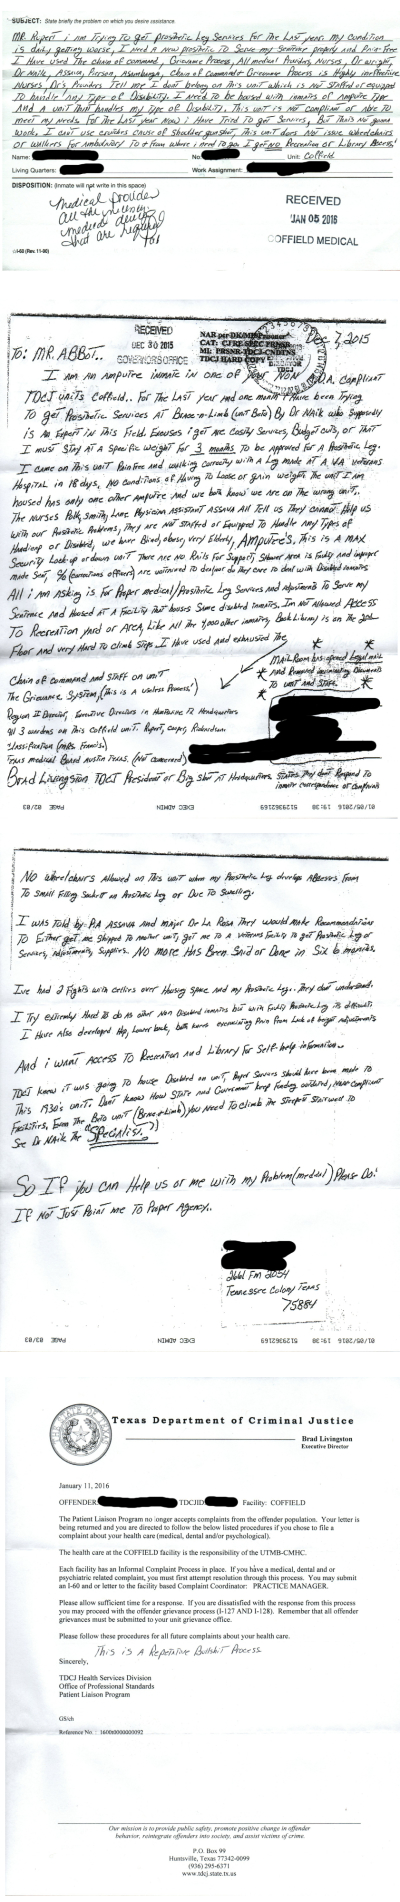 SUBJECT: State briefly the problem on which you desire assistance.
MR. Rupert i am Trying to get prosthetic Leg Services For the Last year. My Condition
is daily getting worse, I need A New prosthetic To Serve my Sentence properly and Pain Free
I Have used The chain of command, Grievance Process, All medical Providers, Nurses, Dr wright,
Dr Naik, Assava, Pierson, chain of command & Grievance Process is Highly ineffective
Nurses, Dr's Providers Tell me I dont belong on This unit which is not Staffed or equipped
To handle Any Type of Disability. I need To be housed with inmates of Amputee Type
And A unit That handles my Type of Disability. This unit is not Compliant or Able To
meet my Needs. For The Last year Now i Have Tried To get Services, But That's not gonna
work. I can't use crutches cause of Shoulder gunshot, This unit Does not issue wheelchairs
or walkers For Ambulatory To & From where i need To go. I get NO Recreation or Library Access!
Name: No: Unit: Coffield
Living Quarters: Work Assignment:
DISPOSITION: (Inmate will not write in this space)
Medical provides
all the necessary
medical devices
that are required
for
RECEIVED
JAN 05 2016
COFFIELD MEDICAL
I-60 (Rev. 11-90)
RECEIVED
DEC 30 2015
GOVERNORS OFFICE
CAT: CJ RE-SPEC PRNSR
MI: PRSNR-TDCJ-CNDTNS
TDCJ HARD COPY
Dec 7, 2015
To: MR. ABBOTT..
I Am An Amputee inmate in one of your NON A.D.A. Compliant
TDCJ units Coffield.. For The Last year and one month I Have been Trying
To get Prosthetic Services At Brace-n-Limb (unit Beto) By Dr NAIK who supposedly
is An Expert in This Field. Excuses i get Are Costly Services, Budget cuts, or That
I must Stay At a Specific Weight For 3 months To be Approved For A Prosthetic Leg.
I came on This unit Pain Free and walking Correctly with A Leg made At A VA Veterans
Hospital in 18 days, NO Conditions of Having To Loose or gain weight. The unit I Am
housed has only one other Amputee And we both know we are on The wrong unit.
The Nurses Polk, Smith, Lane Physician Assistant Assava All Tell us They cannot Help us
with our Prosthetic Problems, They are not Staffed or Equipped To Handle Any Types of
Handicap or Disabled, we have Blind, obese, very Elderly, Amputees. This is A MAX
Security Lock-up or down unit There are no Rails For Support, Shower Area is Faulty and improper
made Seat, % (corrections officers) are untrained To deal or do They care To deal with Disabled inmates
All i Am Asking is For Proper medical/Prosthetic Leg Services and Adjustments To Serve my
Sentence And Housed At A Facility That houses Some disabled inmates. Im Not Allowed Access
To Recreation yard or Area, Like All The 4,000 other inmates, Book Library is on The 2nd
Floor and very Hard To climb Steps. I Have used and exhausted The
Chain of command and Staff on unit
The Grievance System, (This is a useless Process!)
Region II Director, Executive Directors in Huntsville TX Headquarters
All 3 wardens on This Coffield unit. Rupert, Cooper, Richardson
Classification (mrs Francis)
Texas medical Board Austin Texas. (Not answered)
MAIL Room has opened Legal mail
And Removed incriminating Documents
To unit and Staff
Brad Livingston TDCJ President or Big Shot at Headquarters States They dont Respond To
inmate correspondence or complaints
01/05/2016 19:38 5129362169 EXEC ADMIN PAGE 02/03
NO Wheelchairs Allowed on This unit when my Prosthetic Leg develops Abscesses From
To Small Fitting Socket on Prosthetic Leg or Due To Swelling.
I was Told by P.A Assava and Major De La Rosa They would make Recommendations
To Either get me Shipped To Another unit, get me To A Veterans Facility To get Prosthetic Leg or
Services, Adjustments, Supplies. NO more Has Been Said or Done in Six 6 months.
Ive had 2 Fights with cellies over Housing Space and my Prosthetic Leg.. They dont understand.
I Try extremely Hard To do As other Non Disabled inmates but with Faulty Prosthetic Leg its difficult.
I Have Also developed Hip, Lower back, both knees excruciating Pain From Lack of height Adjustments
And i want Access To Recreation and Library For Self-help information..
TDCJ knew it was going To house Disabled on unit, Proper Services Should have been made To
This 1930's unit. Dont know How State and Government keep Funding outdated, none Compliant
Facilities, Even The Beto unit (Brace-n-Limb) you Need To climb The Steepest Stairwell To
See Dr NAIK The "Specialist.?"
So If you can Help us or me with my Problem (medical) Please Do!
If Not Just Point me To Proper Agency..
2661 FM 2054
Tennessee Colony Texas
75884
01/05/2016 19:38 5129362169 EXEC ADMIN PAGE 03/03
Texas Department of Criminal Justice
Brad Livingston
Executive Director
January 11, 2016
OFFENDER TDCJID Facility: COFFIELD
The Patient Liaison Program no longer accepts complaints from the offender population. Your letter is
being returned and you are directed to follow the below listed procedures if you chose to file a
complaint about your health care (medical, dental and/or psychological).
The health care at the COFFIELD facility is the responsibility of the UTMB-CMHC.
Each facility has an Informal Complaint Process in place. If you have a medical, dental and or
psychiatric related complaint, you must first attempt resolution through this process. You may submit
an I-60 and or letter to the facility based Complaint Coordinator: PRACTICE MANAGER.
Please allow sufficient time for a response. If you are dissatisfied with the response from this process
you may proceed with the offender grievance process (I-127 AND I-128). Remember that all offender
grievances must be submitted to your unit grievance office.
Please follow these procedures for all future complaints about your health care.
This is A Repetative Bullshit Process
Sincerely,
TDCJ Health Services Division
Office of Professional Standards
Patient Liaison Program
GS/ch
Reference No. : 1600I0000000092
Our mission is to provide public safety, promote positive change in offender
behavior, reintegrate offenders into society, and assist victims of crime.
P.O. Box 99
Huntsville, Texas 77342-0099
(936) 295-6371
www.tdcj.state.tx.us